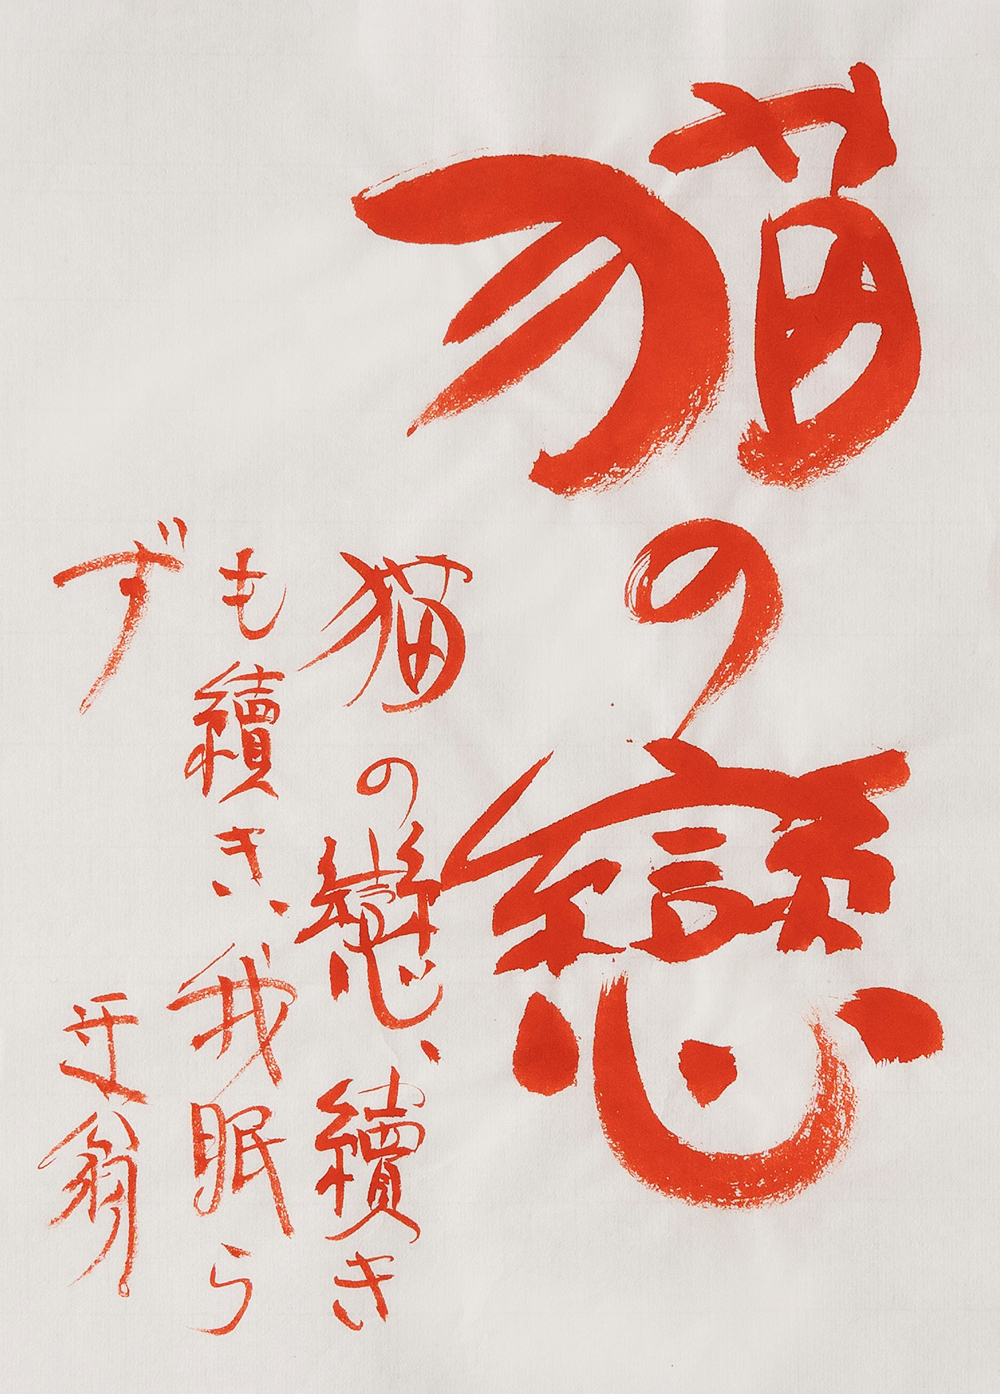 猫の戀
猫の戀、續き
も續き、我眠ら
ず
翁